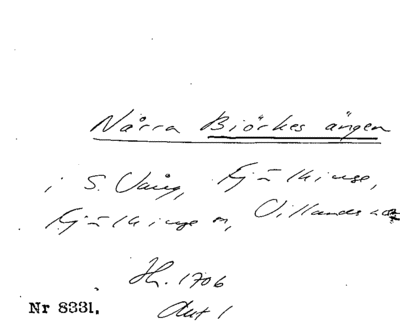 Nårra Biörkes ängen
i S. Vång, Fjälkinge,
Fjälkinge sn, Villands hd
Jb. 1706
Akt 1
Nr 8331.